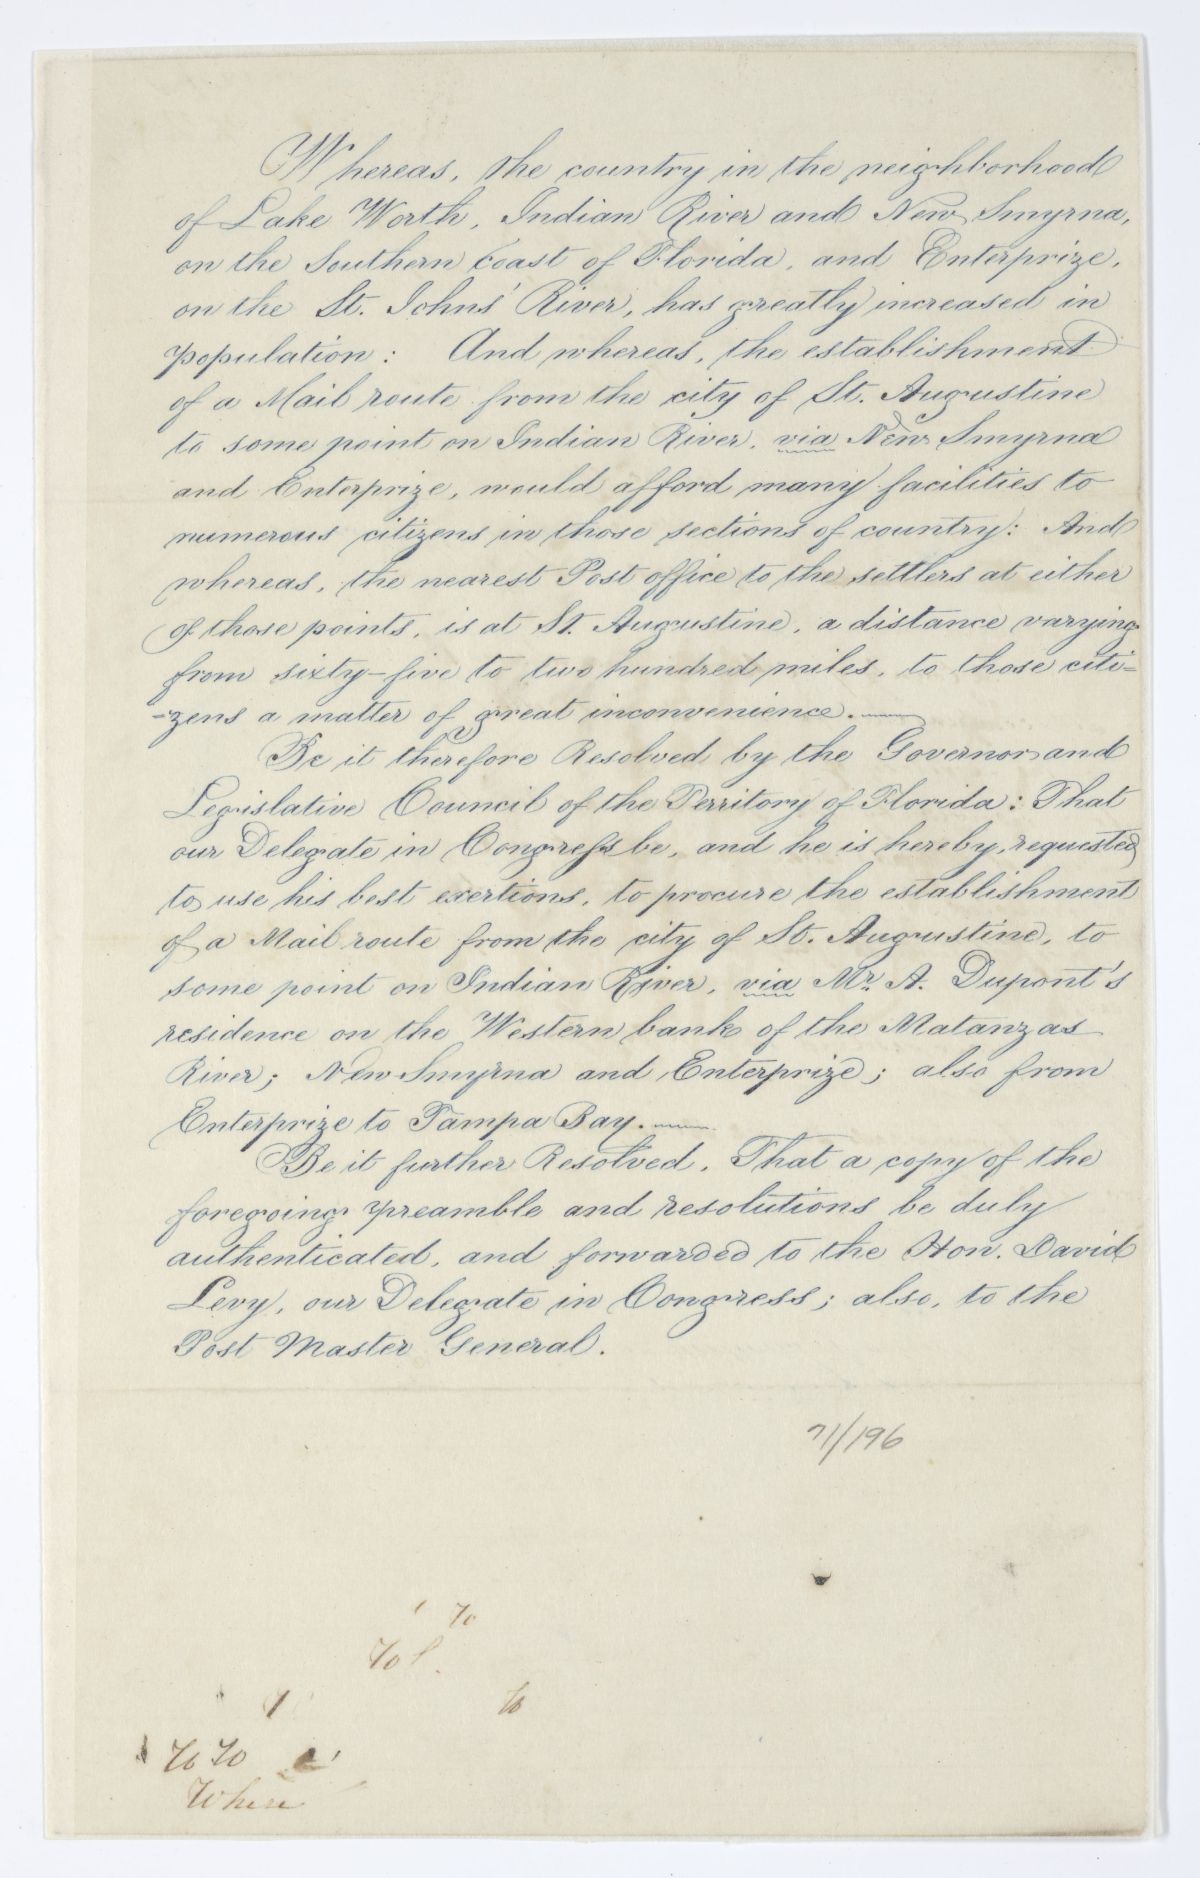 Whereas, the country in the neighborhood
of Lake Worth, Indian River and New Smyrna,
on the Southern Coast of Florida, and Enterprize,
on the St. Johns' River, has greatly increased in
population: And whereas, the establishment
of a Mail route from the city of St. Augustine
to some point on Indian River, via New Smyrna
and Enterprize, would afford many facilities to
numerous citizens in those sections of country: And
whereas, the nearest Post office to the settlers at either
of those points, is at St. Augustine, a distance varying
from sixty-five to two hundred miles, to those citi=
=zens a matter of great inconvenience.
Be it therefore Resolved by the Governor and
Legislative Council of the Territory of Florida: That
our Delegate in Congress be, and he is hereby, requested
to use his best exertions, to procure the establishment
of a Mail route from the city of St. Augustine, to
some point on Indian River, via Mr. A. Dupont's
residence on the Western bank of the Matanzas
River; New Smyrna and Enterprize; also from
Enterprize to Tampa Bay.
Be it further Resolved, That a copy of the
foregoing preamble and resolutions be duly
authenticated, and forwarded to the Hon. David
Levy, our Delegate in Congress; also, to the
Post Master General.
71/196
To
To
To
To To
Where